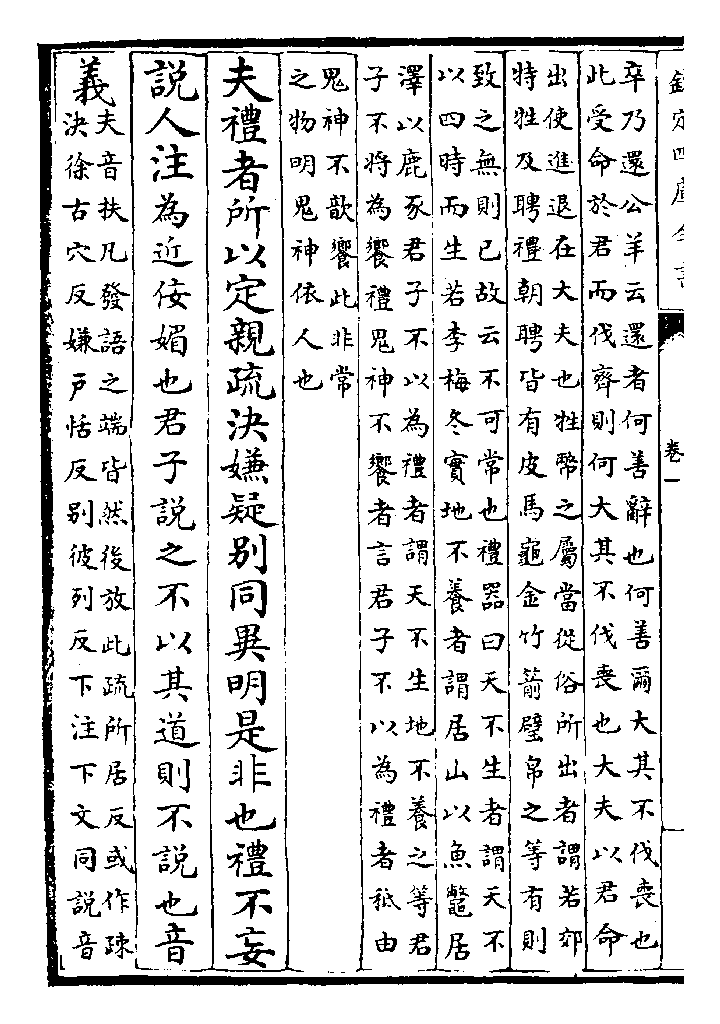 欽定四庫全書
卷一
卒乃還公羊云還者何善辭也何善爾大其不伐喪也
此受命於君而伐齊則何大其不伐喪也大夫以君命
出使進退在大夫也牲幣之屬當從俗所出者謂若郊
特牲及聘禮朝聘皆有皮馬龜金竹箭璧帛之等有則
致之無則已故云不可常也禮器曰天不生者謂天不
以四時而生若李梅冬實地不養者謂居山以魚鼈居
澤以鹿豕君子不以為禮者謂天不生地不養之等君
子不將為饗禮鬼神不饗者言君子不以為禮者秖由
鬼神不歆饗此非常
之物明鬼神依人也
夫禮者所以定親疏決嫌疑别同異明是非也禮不妄
說人注為近佞媚也君子說之不以其道則不說也音
義
夫音扶凡發語之端皆然後放此疏所居反或作疎
決徐古穴反嫌戸恬反别彼列反下注下文同說音